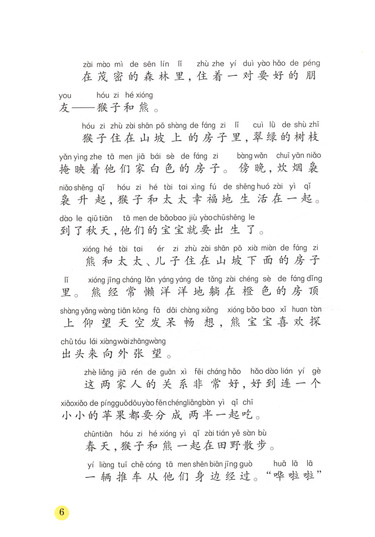 zài mào mì de sēn lín lǐ zhù zhe yí duì yào hǎo de péng
在茂密的森林里,住着一对要好的朋
you hóu zi hé xióng
友——猴子和熊。
hóu zi zhù zài shān pō shàng de fáng zi lǐ cuì lǜ de shù zhī
猴子住在山坡上的房子里,翠绿的树枝
yǎn yìng zhe tā men jiā bái sè de fáng zi bàng wǎn chuī yān niǎo
掩映着他们家白色的房子。傍晚,炊烟袅
niǎo shēng qǐ hóu zi hé tài tai xìng fú de shēng huó zài yì qǐ
袅升起,猴子和太太幸福地生活在一起。
dào le qiū tiān tā men de bǎo bao jiù yào chū shēng le
到了秋天,他们的宝宝就要出生了。
xióng hé tài tai ér zi zhù zài shān pō xià miàn de fáng zi
熊和太太、儿子住在山坡下面的房子
lǐ xióng jīng cháng lǎn yáng yáng de tǎng zài chéng sè de fáng dǐng
里。熊经常懒洋洋地躺在橙色的房顶
shàng yǎng wàng tiān kōng fā dāi chàng xiǎng xióng bǎo bao xǐ huan tàn
上仰望天空发呆畅想,熊宝宝喜欢探
chū tóu lái xiàng wài zhāng wàng
出头来向外张望。
zhè liǎng jiā rén de guān xì fēi cháng hǎo hǎo dào lián yí gè
这两家人的关系非常好,好到连一个
xiǎo xiǎo de píng guǒ dōu yào fēn chéng liǎng bàn yì qǐ chī
小小的苹果都要分成两半一起吃。
chūn tiān hóu zi hé xióng yì qǐ zài tián yě sàn bù
春天,猴子和熊一起在田野散步。
yí liàng tuī chē cóng tā men shēn biān jīng guò huā lā lā
一辆推车从他们身边经过。“哗啦啦”
6